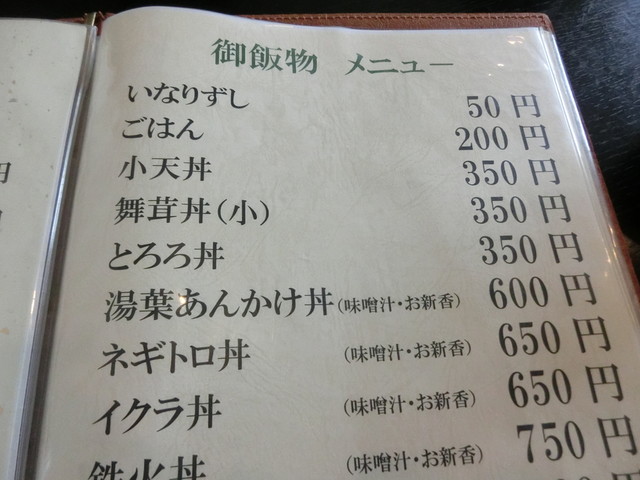 御飯物 メニュー
いなりずし 50 円
ごはん 200 円
小天丼 350 円
舞茸丼(小) 350 円
とろろ丼 350 円
湯葉あんかけ丼(味噌汁・お新香) 600 円
ネギトロ丼 (味噌汁・お新香) 650 円
イクラ丼 (味噌汁・お新香) 650 円
鉄火丼 (味噌汁・お新香) 750 円
円